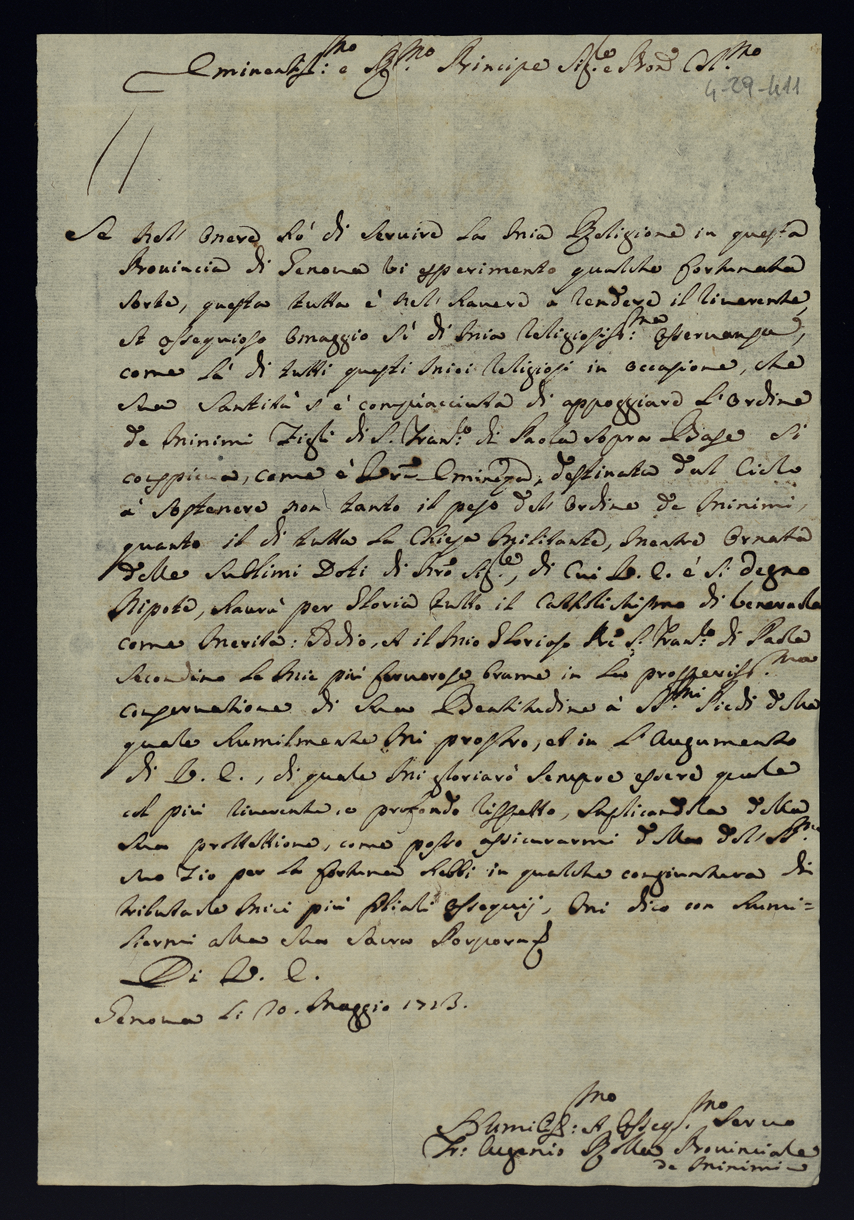 Eminentiss:mo e R.mo Principe Sig.e e Pron Col.mo
4-29-411
Se nell' onere hò di servire la mia Religione in questa
Provincia di Genova vi esperimento qualche fortunata
sorte, questa tutta è nell' havere a rendere il riverente,
et ossequioso omaggio sì di mia religiosiss:ma osservanza,
come la di tutti questi miei religiosi in occasione, che
sua Santità s' è compiacciuta di appoggiare l' ordine
de Minimi Figli di S. Fran.co di Paola sopra Base si
cospicua, come è Vra Eminenza, destinata dal Cielo
a sostenere non tanto il peso dell' ordine de Minimi,
quanto il di tutta la Chiesa Militante, mentre ornata
delle sublimi Doti di Nro Sig.e, di cui V. E. è si degno
Nipote, haurà per gloria tutto il Cattolichismo di venerarla
come merita: Iddio, et il mio glorioso Pre S. Fran.co di Paola
secondino le mie più fervorose brame in la prosperiss.ma
conservatione di sua Beatitudine a SS.mi Piedi della
quale humilmente mi prostro, et in l' Augumento
di V. E., di quale mi gloriarò sempre essere quale
col più riverente, e profondo rispetto, suplicandola della
sua prottettione, come posso assicurarmi della dell'
suo Zio per la fortuna hebbi in qualche congiuntura di
tributarle miei più filiali ossequij, mi dico con humi=
liarmi alla sua Sacra Porpora
Di V. E.
Genova li 20. Maggio 1713.
Humiliss:mo et osseq.mo Servo
Fr: Eugenio Provinciale
de Minimi